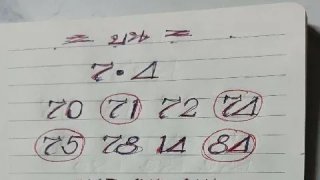 7.4
70 71 72 74
75 78 14 84